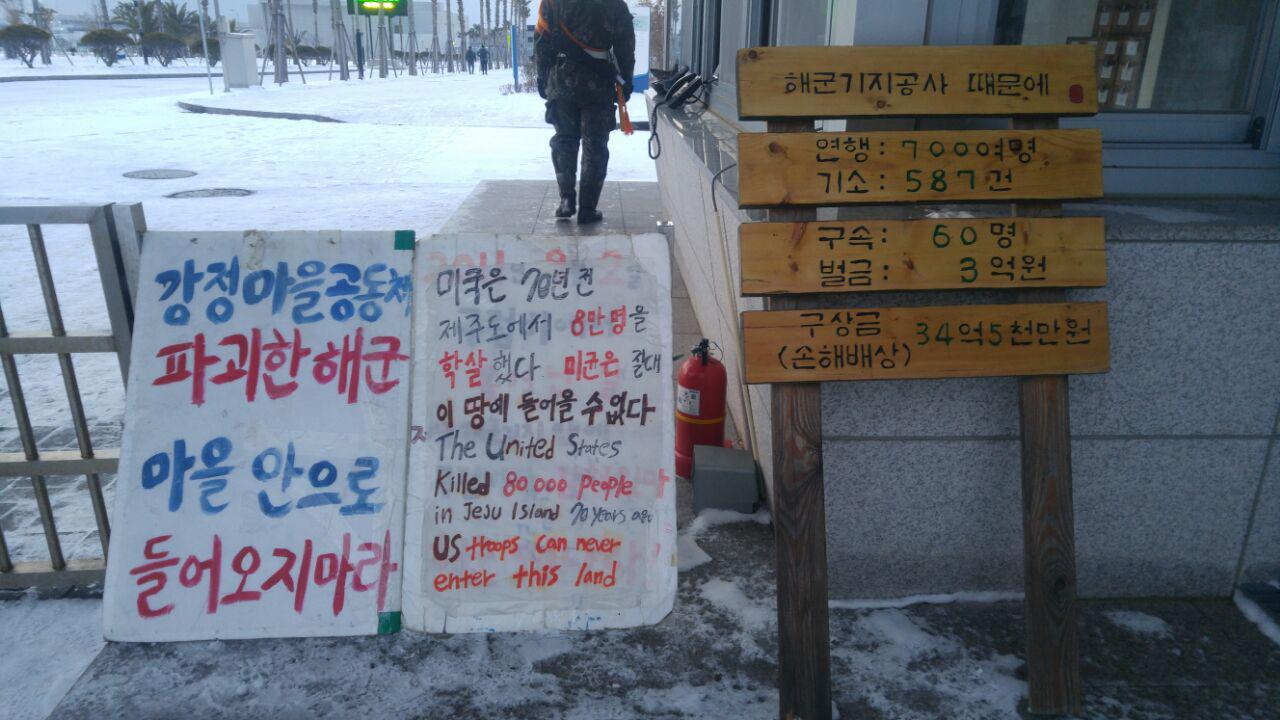 강정마을공동체
파괴한 해군
마을 안으로
들어오지마라
미국은 70년 전
제주도에서 8만명을
학살했다 미군은 절대
이 땅에 들어올 수 없다
The United States
Killed 80000 people
in Jeju Island 70 years ago
US troops can never
enter this land
해군기지공사 때문에
연행: 700여명
기소: 587건
구속: 60명
벌금: 3억원
구상금 34억5천만원
(손해배상)